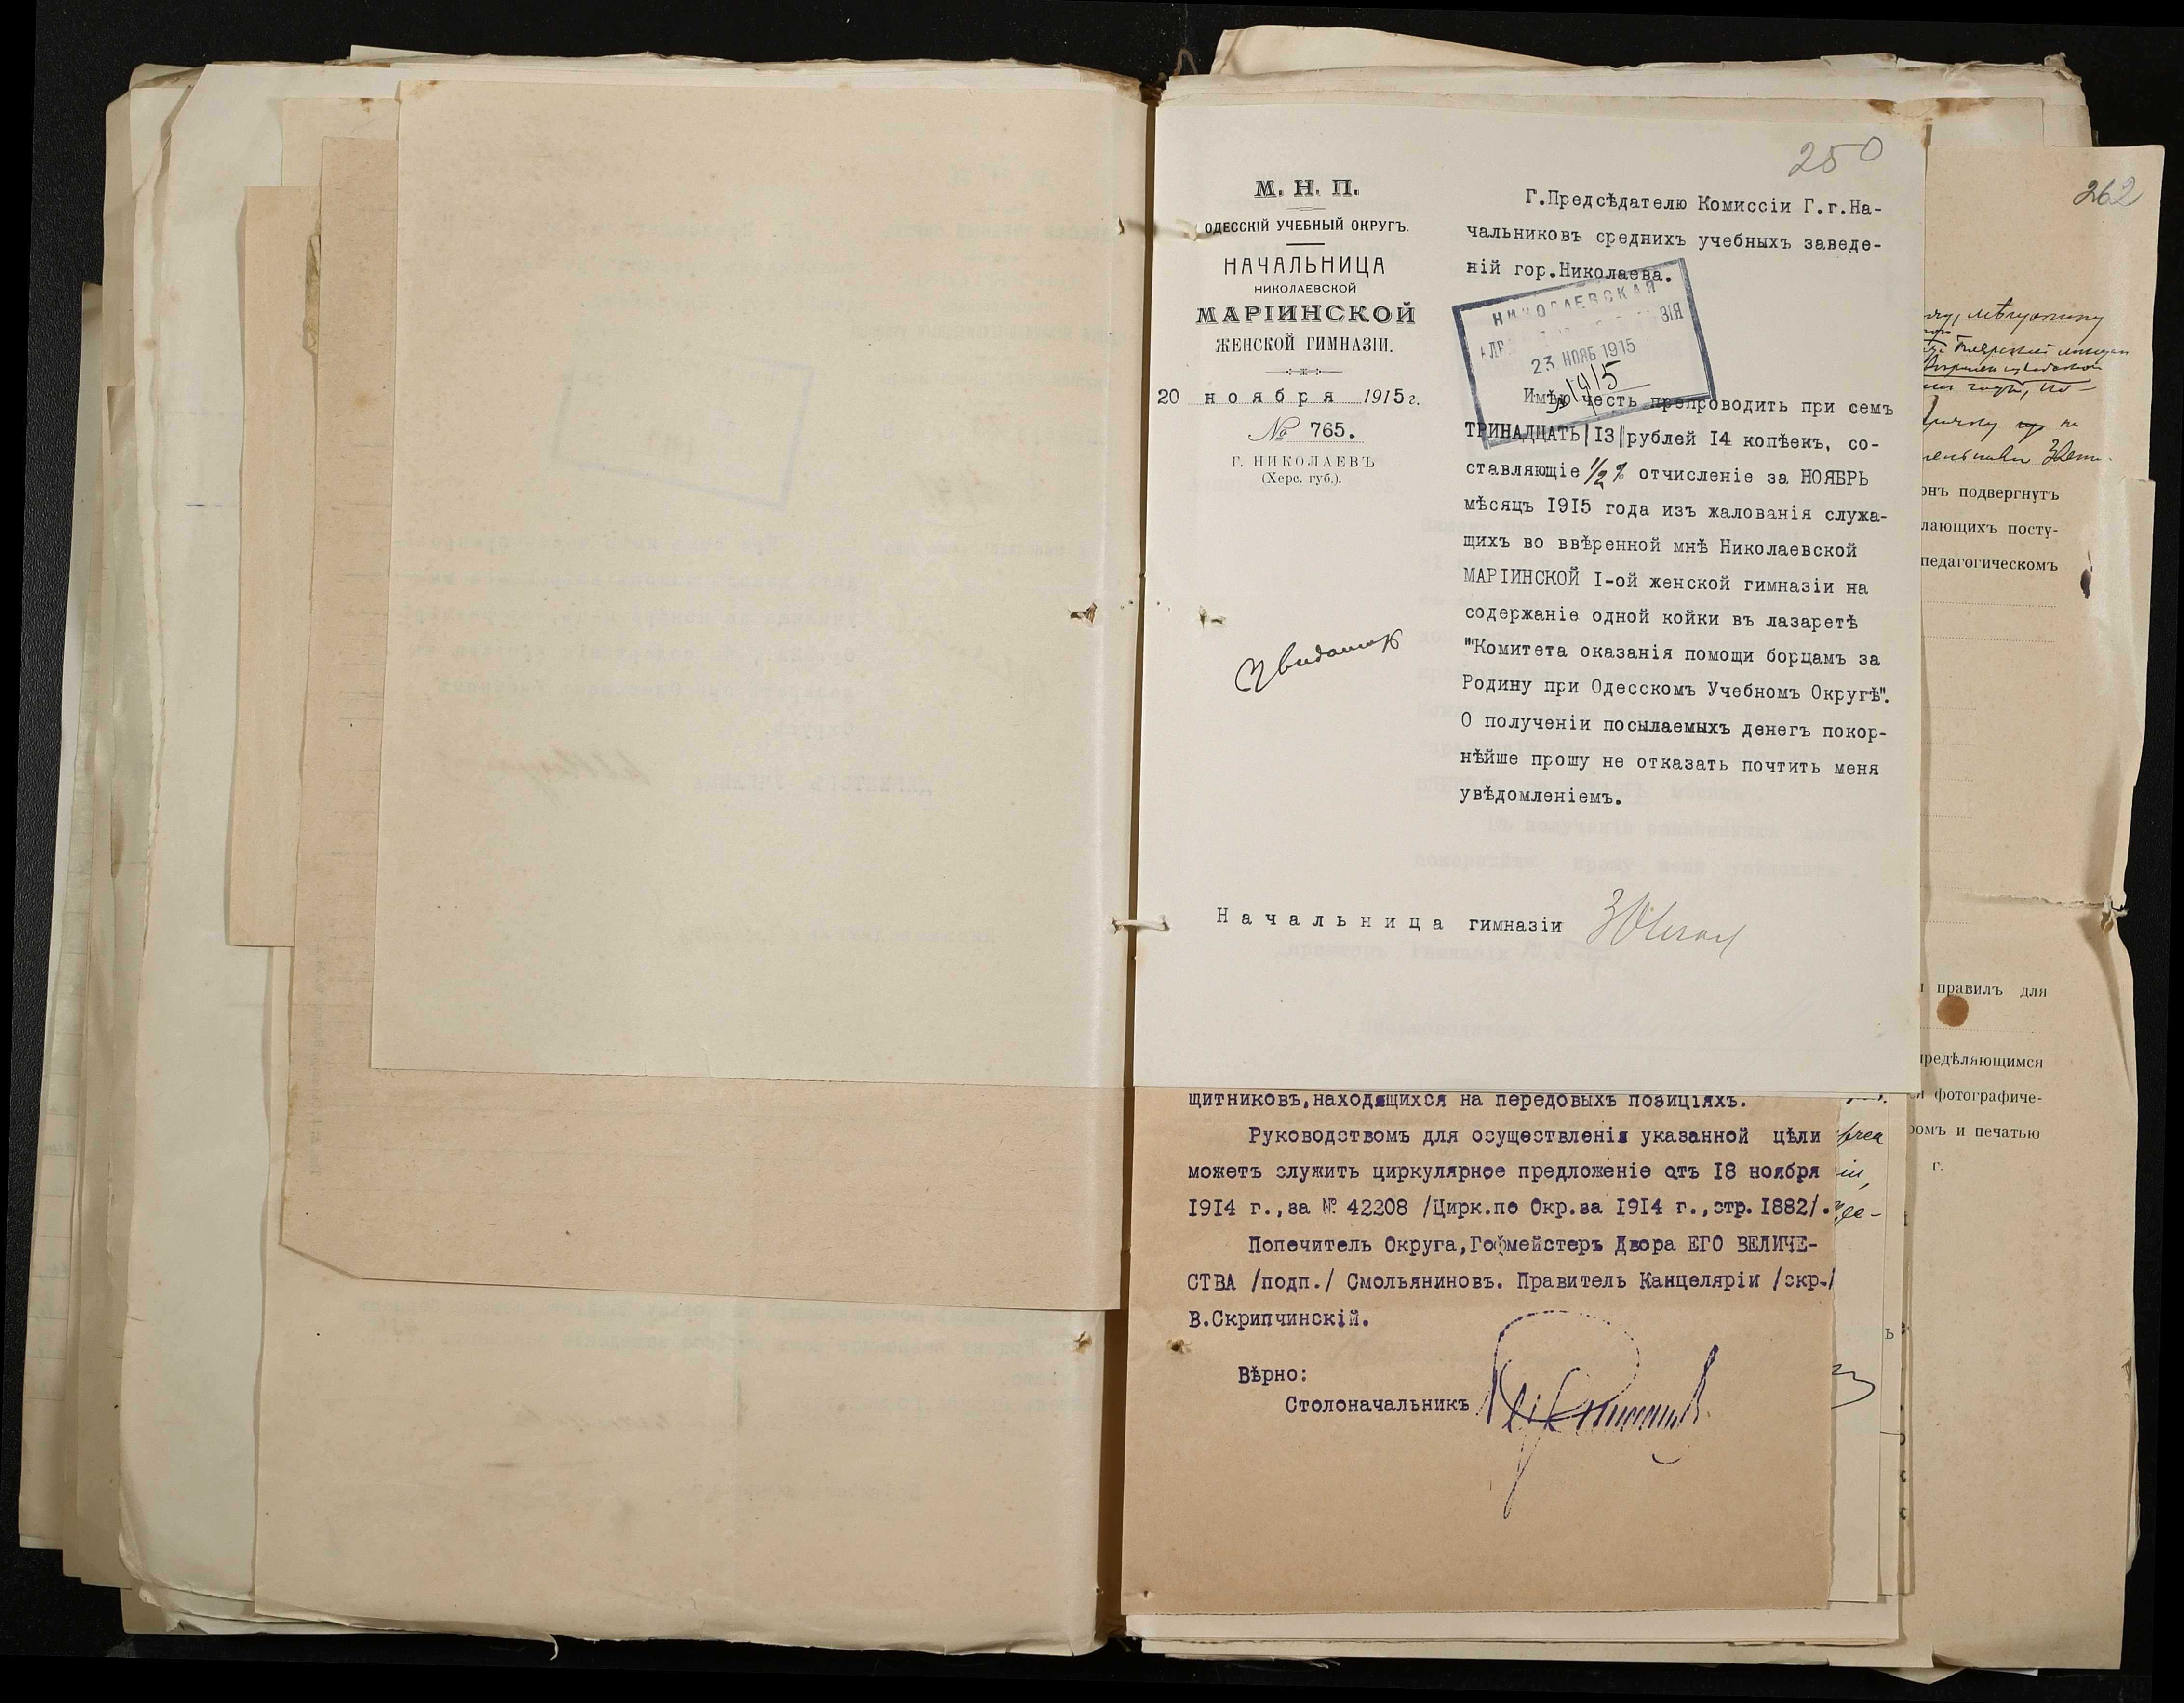 250
М. Н. П.
ОДЕССКІЙ УЧЕБНЫЙ ОКРУГЪ.
НАЧАЛЬНИЦА
НИКОЛАЕВСКОЙ
МАРІИНСКОЙ
ЖЕНСКОЙ ГИМНАЗІИ.
20 ноября 1915 г.
№ 765.
Г. НИКОЛАЕВЪ
(Херс. губ.).
Г.Предсѣдателю Комиссіи Г.г.На-
чальниковъ средних учебныхъ заведе-
ній гор.Николаева.
НИКОЛАЕВСКАЯ
23 НОЯБ 1915
Имѣю честь препроводить при семъ
ТРИНАДЦАТЬ/13/рублей 14 копѣекъ, со-
ставляющіе 1/2 % отчисленіе за НОЯБРЬ
мѣсяцъ 1915 года изъ жалованія служа-
щихъ во ввѣренной мнѣ Николаевской
МАРІИНСКОЙ I-ой женской гимназіи на
содержаніе одной койки въ лазаретѣ
"Комитета оказанія помощи борцамъ за
Родину при Одесскомъ Учебномъ Округѣ".
О полученіи посылаемыхъ денегъ покор-
нѣйше прошу не отказать почтить меня
увѣдомленіемъ.
Начальница гимназіи
щитниковъ,находящихся на передовыхъ позиціяхъ.
Руководствомъ для осуществленія указанной цѣли
можетъ служить циркулярное предложеніе отъ 18 ноября
1914 г.,за № 42208 /Цирк.по Окр.за 1914 г.,стр.1882/.
Попечитель Округа,Гофмейстеръ Двора ЕГО ВЕЛИЧЕ-
СТВА /подп./ Смольяниновъ. Правитель Канцеляріи /скр./
В.Скрипчинскій.
Вѣрно:
Столоначальникъ
262
онъ подвергнутъ
лающихъ посту-
педагогическомъ
правилъ для
предѣляющимся
фотографиче-
ромъ и печатью
г.